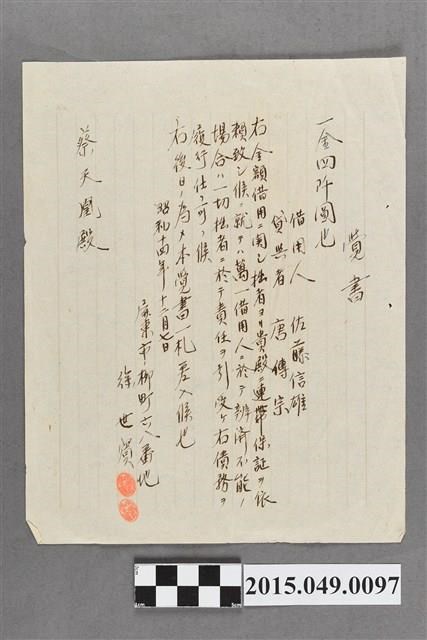 覚書
一金四阡圓也
借用人 佐藤信雄
貸與者 唐傳宗
右金額借用ニ関シ拙者ヨリ貴殿ニ連帯保証ヲ依
頼致シ候ニ就テハ萬一借用人ニ於テ辨済不能ノ
場合ハ一切拙者ニ於テ責任ヲ引受ケ右債務ヲ
履行仕ル可ク候
右後日ノ為メ本覚書一札差入候也
昭和十四年十二月七日
屏東市柳町六八番地
徐世
蔡天凰殿
1cm
5cm
2015.049.0097